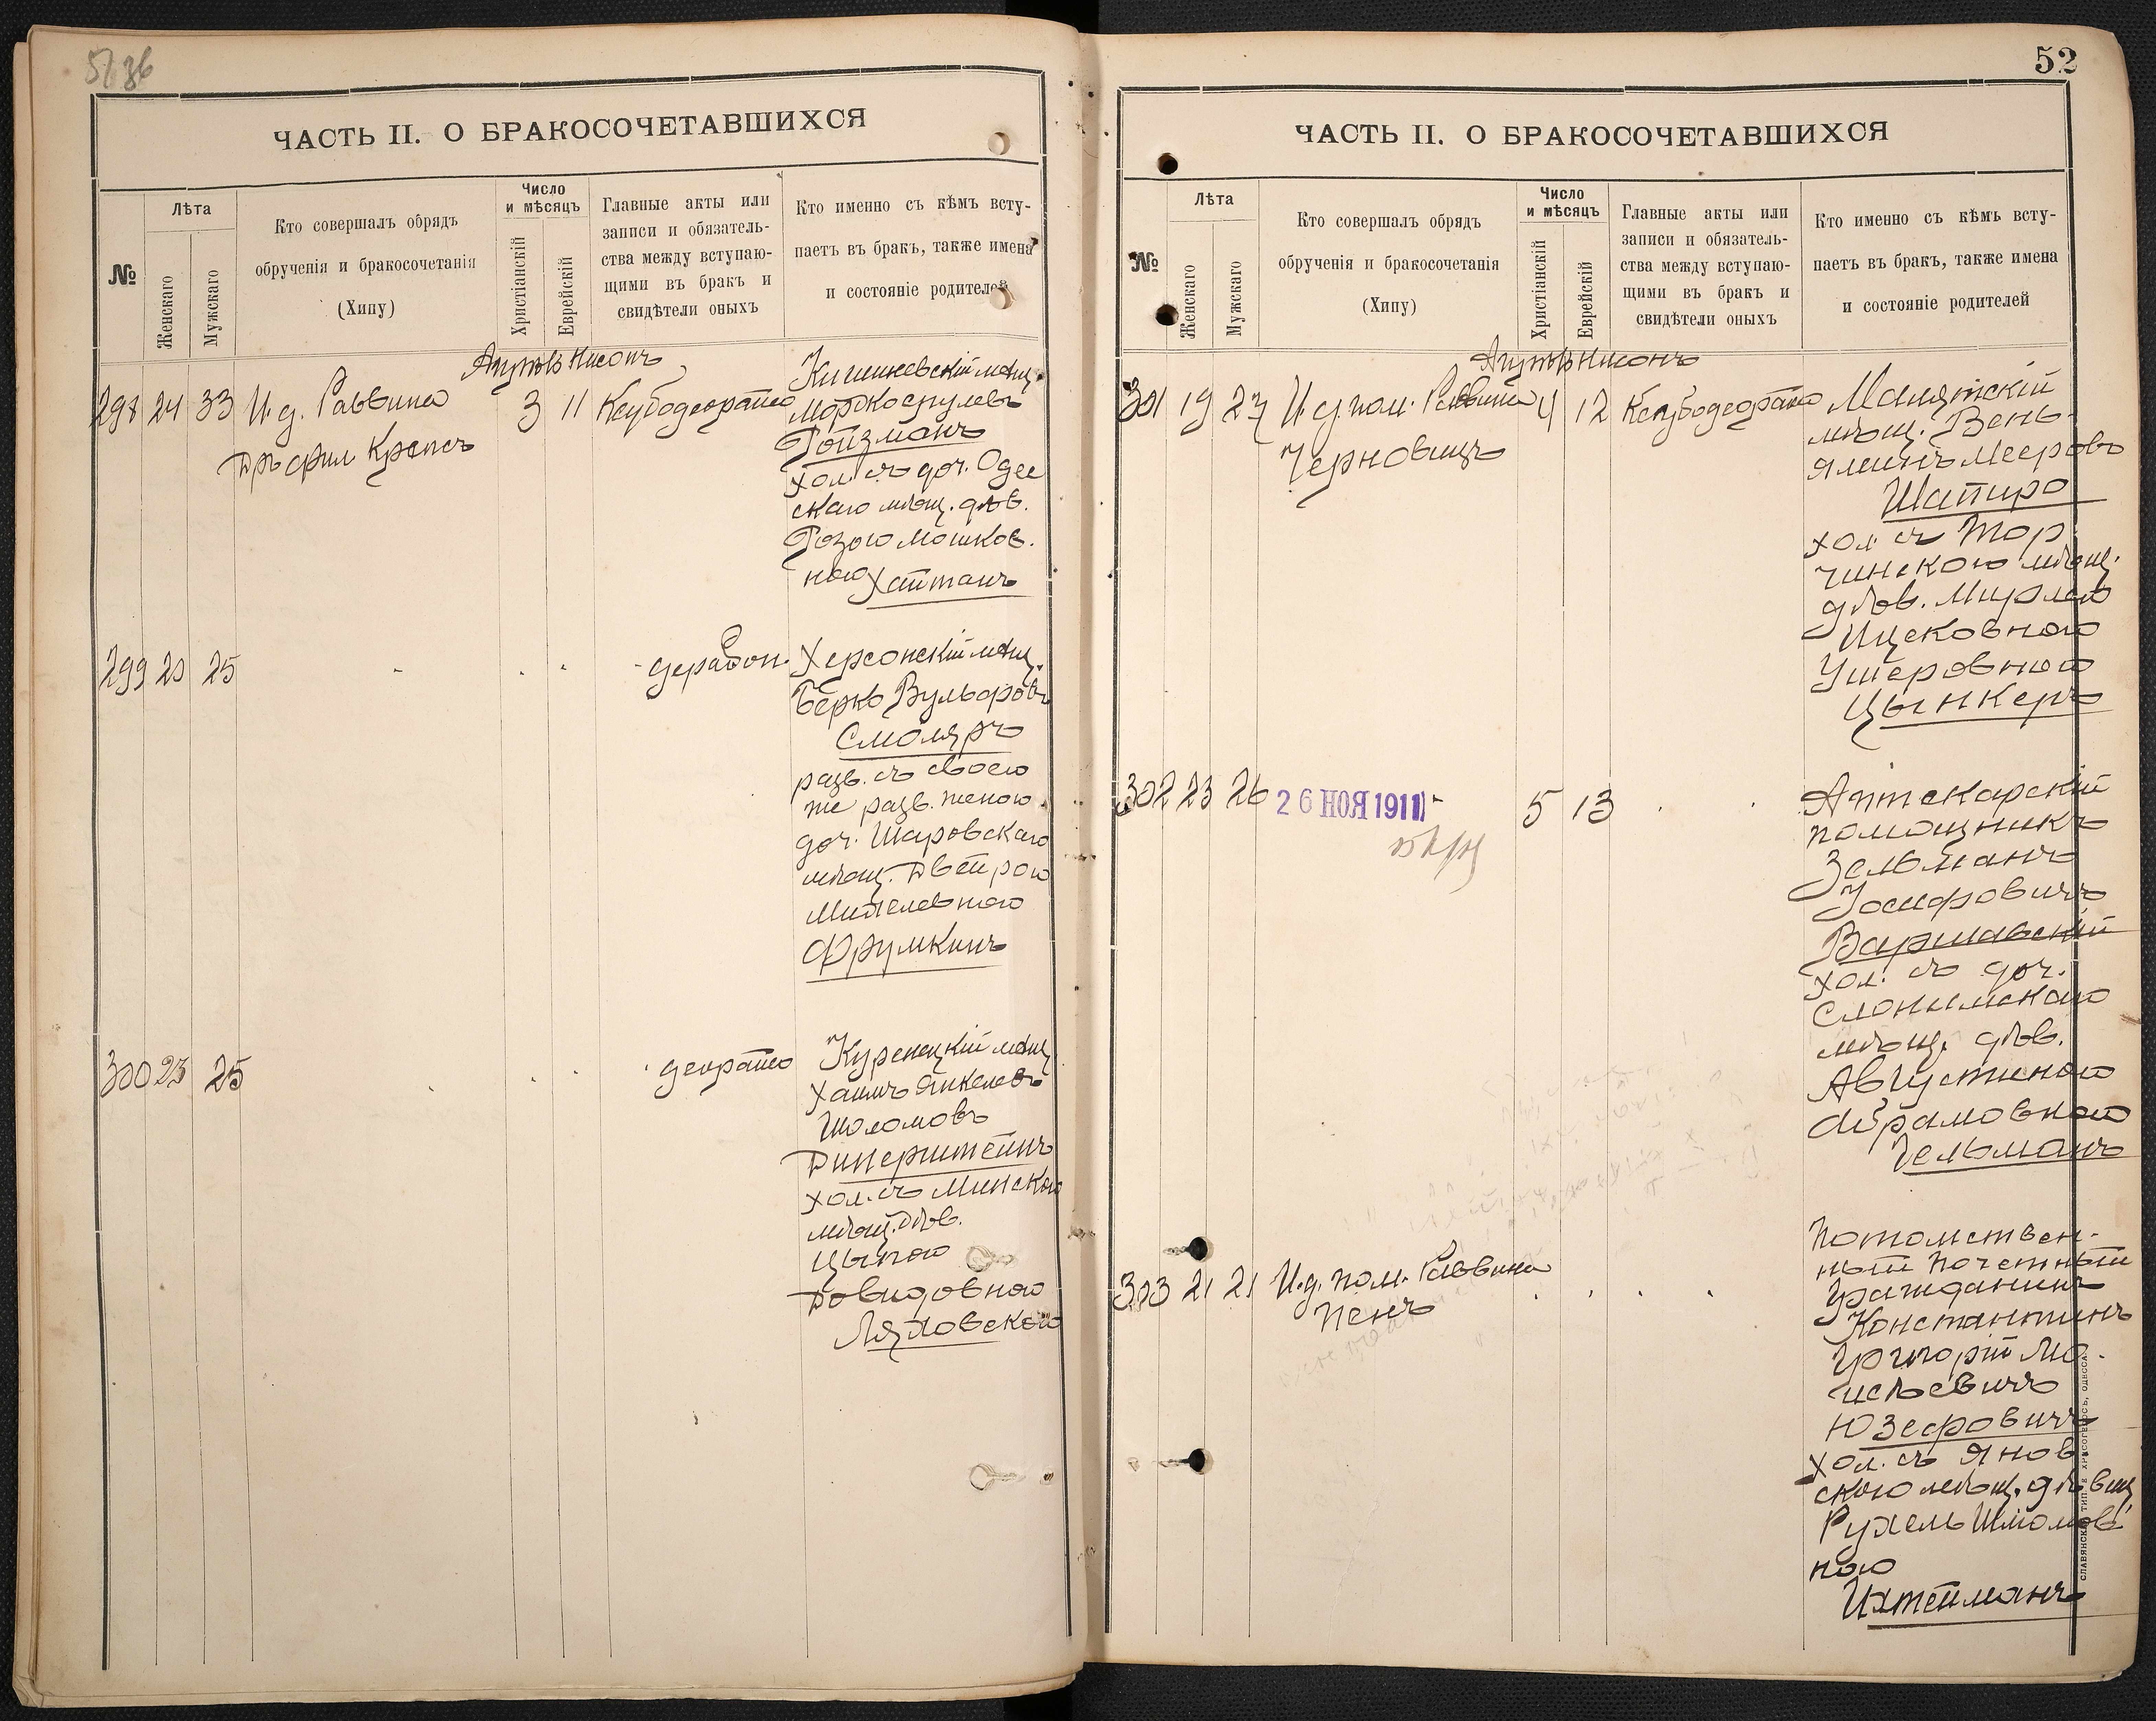 ЧАСТЬ II. О БРАКОСОЧЕТАВШИХСЯ
№
Лѣта
Женскаго
Мужскаго
Кто совершалъ обрядъ
обрученія и бракосочетанія
(Хипу)
Число
и мѣсяцъ
Христіанскій
Еврейскій
Главные акты или
записи и обязатель-
ства между вступаю-
щими въ бракъ и
свидѣтели оныхъ
Кто именно съ кѣмъ всту-
паетъ въ бракъ, также имена
и состояніе родителей
298 24 33 И. д. Раввина
3 11
Кишиневскій мѣщ.
Ройзманъ
хол. съ доч. Одес
скаго мѣщ. дѣв.
Розою Мошков.
ною Хайтанъ
299 20 25
Херсонскій мѣщ.
Берко Вульфовъ
Смоляръ
разв. съ своею
же разв. женою
доч. Шаровскаго
мѣщ. Двейрою
Фрумкинъ
300 23 25
Куренецкій мѣщ.
Хаимъ Янкелевъ
Шоломовъ
Диперштейнъ
хол. съ Минскою
мѣщ. дѣв.
Цыпою
Довидовною
Ляховскою
52
ЧАСТЬ II. О БРАКОСОЧЕТАВШИХСЯ
№
Лѣта
Женскаго
Мужскаго
Кто совершалъ обрядъ
обрученія и бракосочетанія
(Хипу)
Число
и мѣсяцъ
Христіанскій
Еврейскій
Главные акты или
записи и обязатель-
ства между вступаю-
щими въ бракъ и
свидѣтели оныхъ
Кто именно съ кѣмъ всту-
паетъ въ бракъ, также имена
и состояніе родителей
301 19 27 И. д. пом. Раввина 4 12
Черновицъ
Малятскій
мѣщ. Вень-
яминъ Мееровъ
Шапиро
хол. съ Тор
чинскою мѣщ.
дѣв. Мирлею
Ицековною
Ушеровною
Цынкеръ
302 23 26 26 НОЯ 1911 5 13
Аптекарскій
помощникъ
Зельманъ
Іосифовичъ
Варшавскій
хол. съ доч.
Слонимскаго
мѣщ. дѣв.
Августиною
Абрамовною
Гельманъ
303 21 21 И. д. пом. Раввина
Пенъ
Потомствен-
ный Почетный
Гражданинъ
Константинъ
Григорій Мо-
исѣевичъ
Юзефовичъ
хол. съ Янов
скою мѣщ. дѣвиц.
Рухель Шлiомов
ною
Ихтейманъ
СЛАВЯНСКАЯ ТИП. Е. ХРИСОГЕЛОСЪ, ОДЕССА.